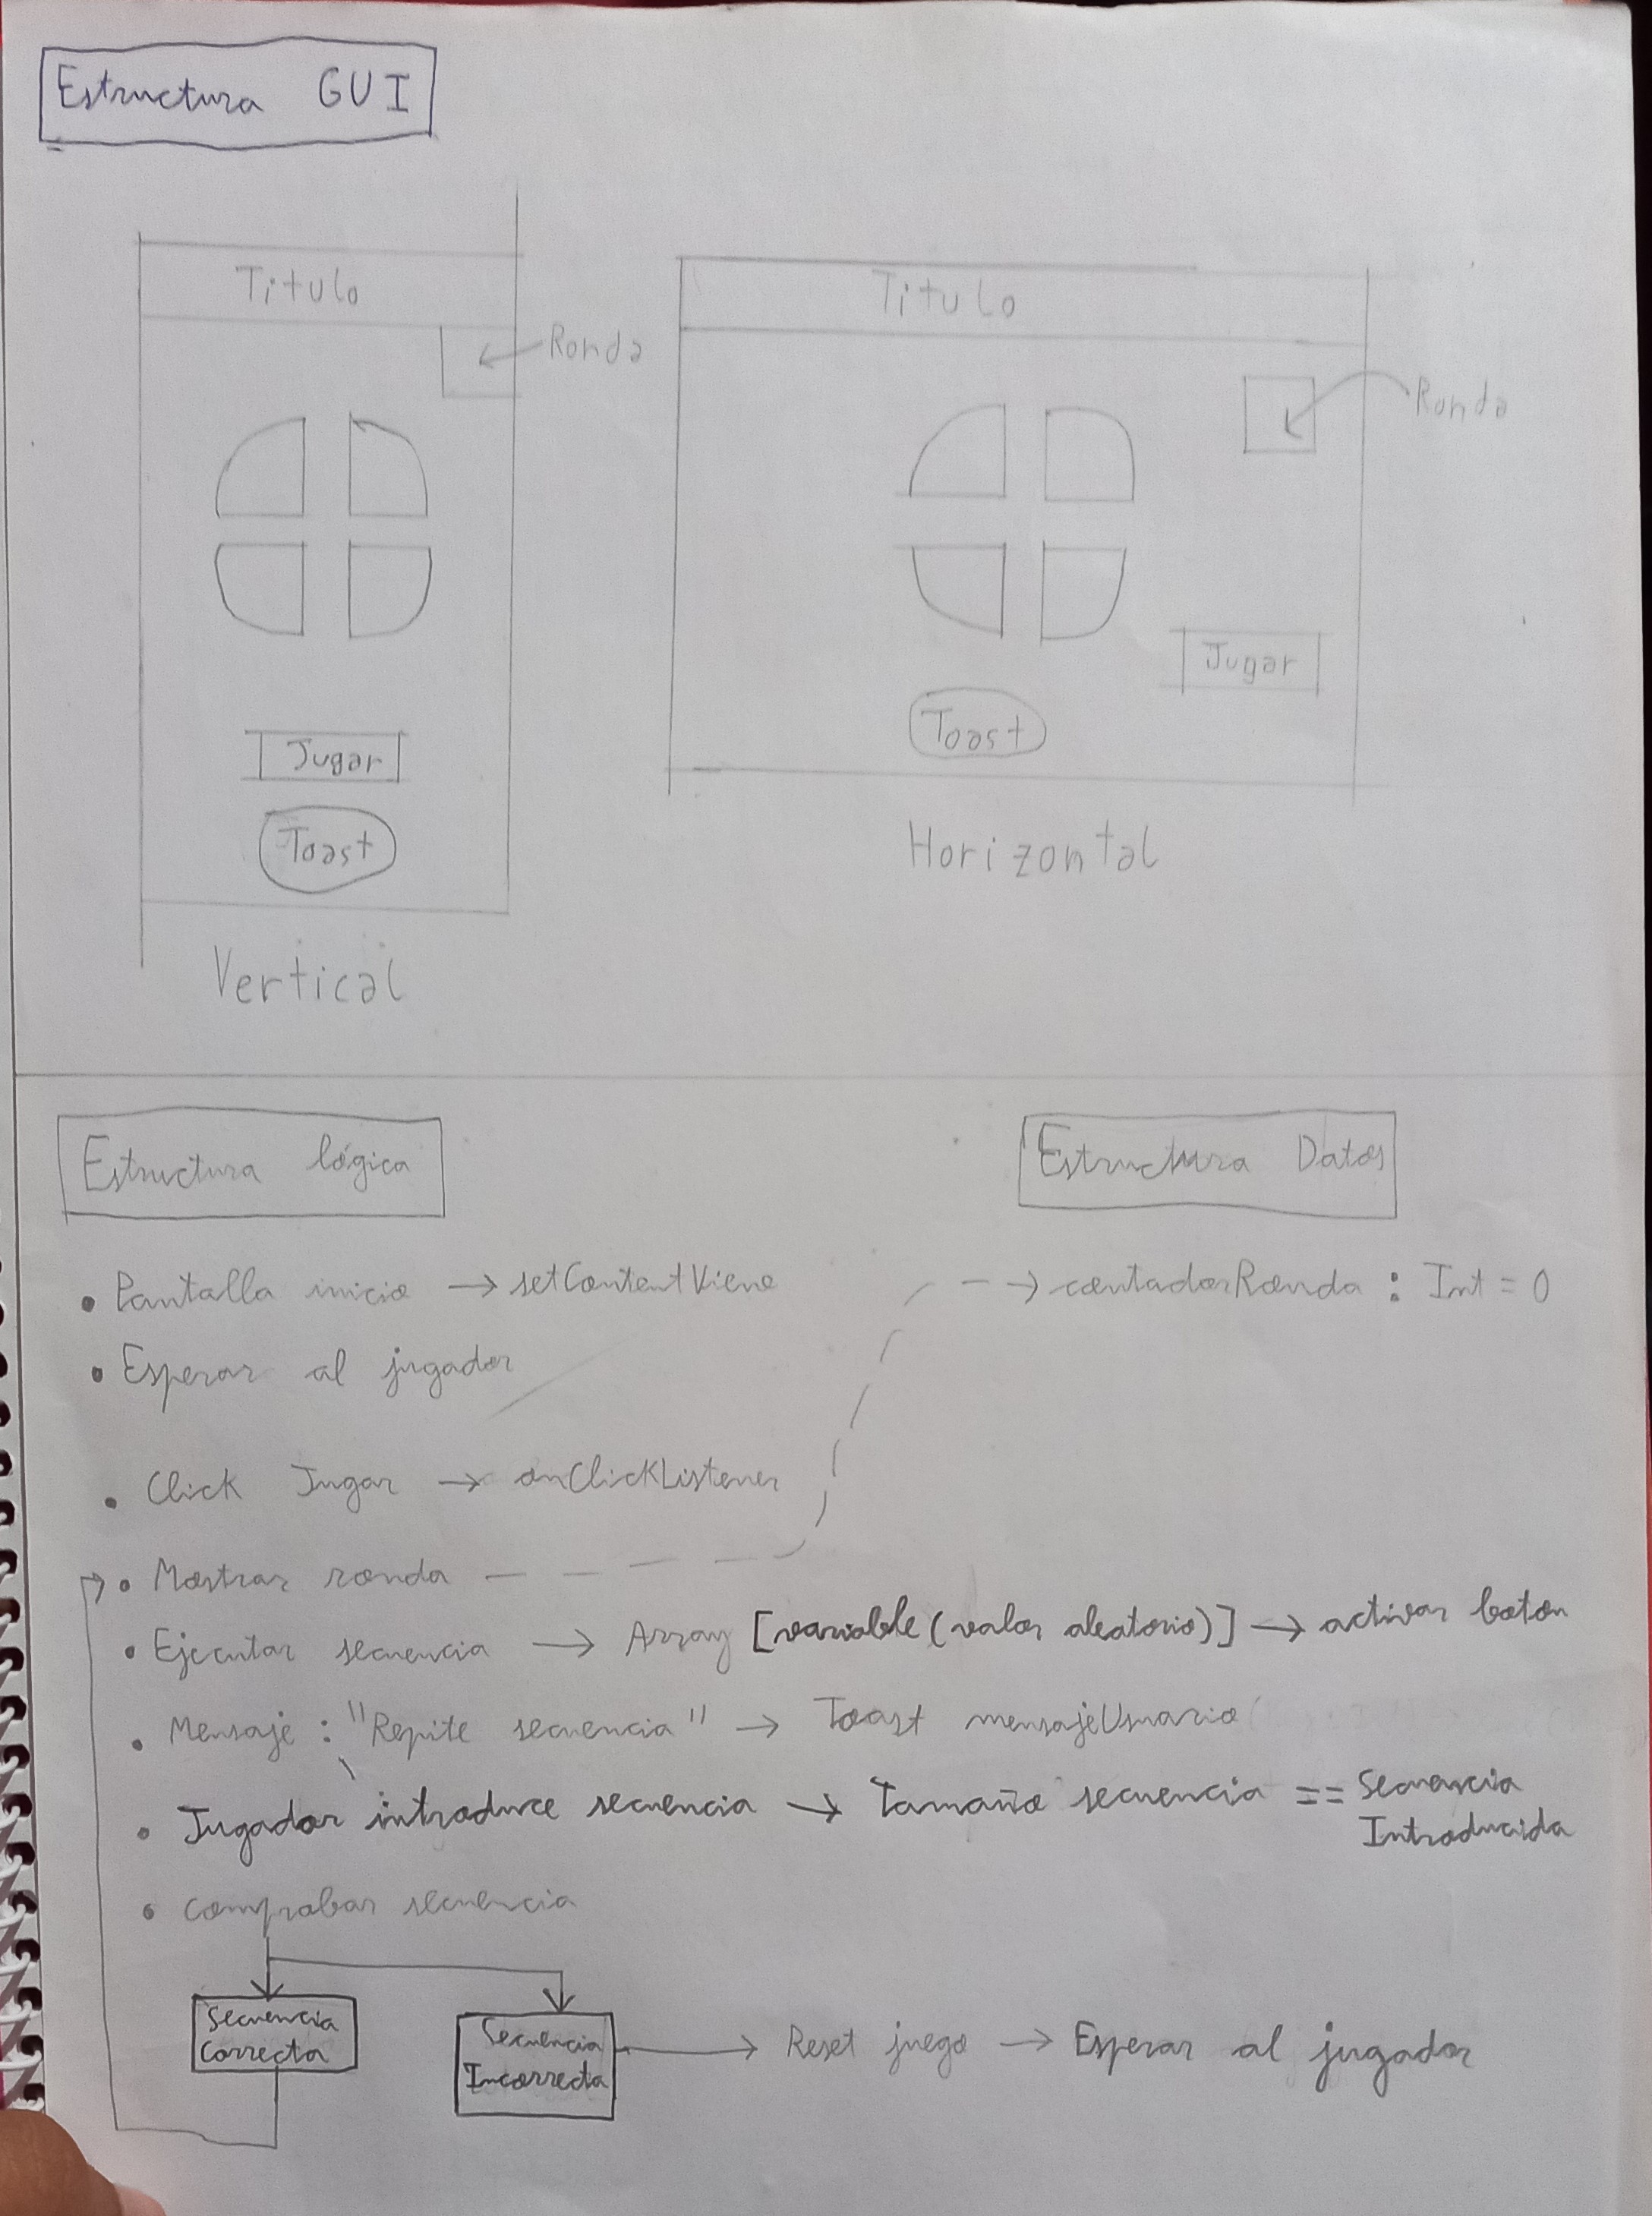 Estructura GUI
Titulo
Ronda
Jugar
Toast
Vertical
Titulo
Ronda
Jugar
Toast
Horizontal
Estructura lógica
Estructura Datos
• Pantalla inicio → setContentView
--→ contadorRonda : Int = 0
• Esperar al jugador
• Click Jugar → onClickListener
• Mostrar ronda
• Ejecutar secuencia → Array [variable (valor aleatorio)] → activar boton
• Mensaje : "Repite secuencia" → Toast mensajeUsuario
• Jugador introduce secuencia → Tamaño secuencia == Secuencia
Introducida
• Comprobar secuencia
Secuencia
Correcta
Secuencia
Incorrecta
→ Reset juego → Esperar al jugador